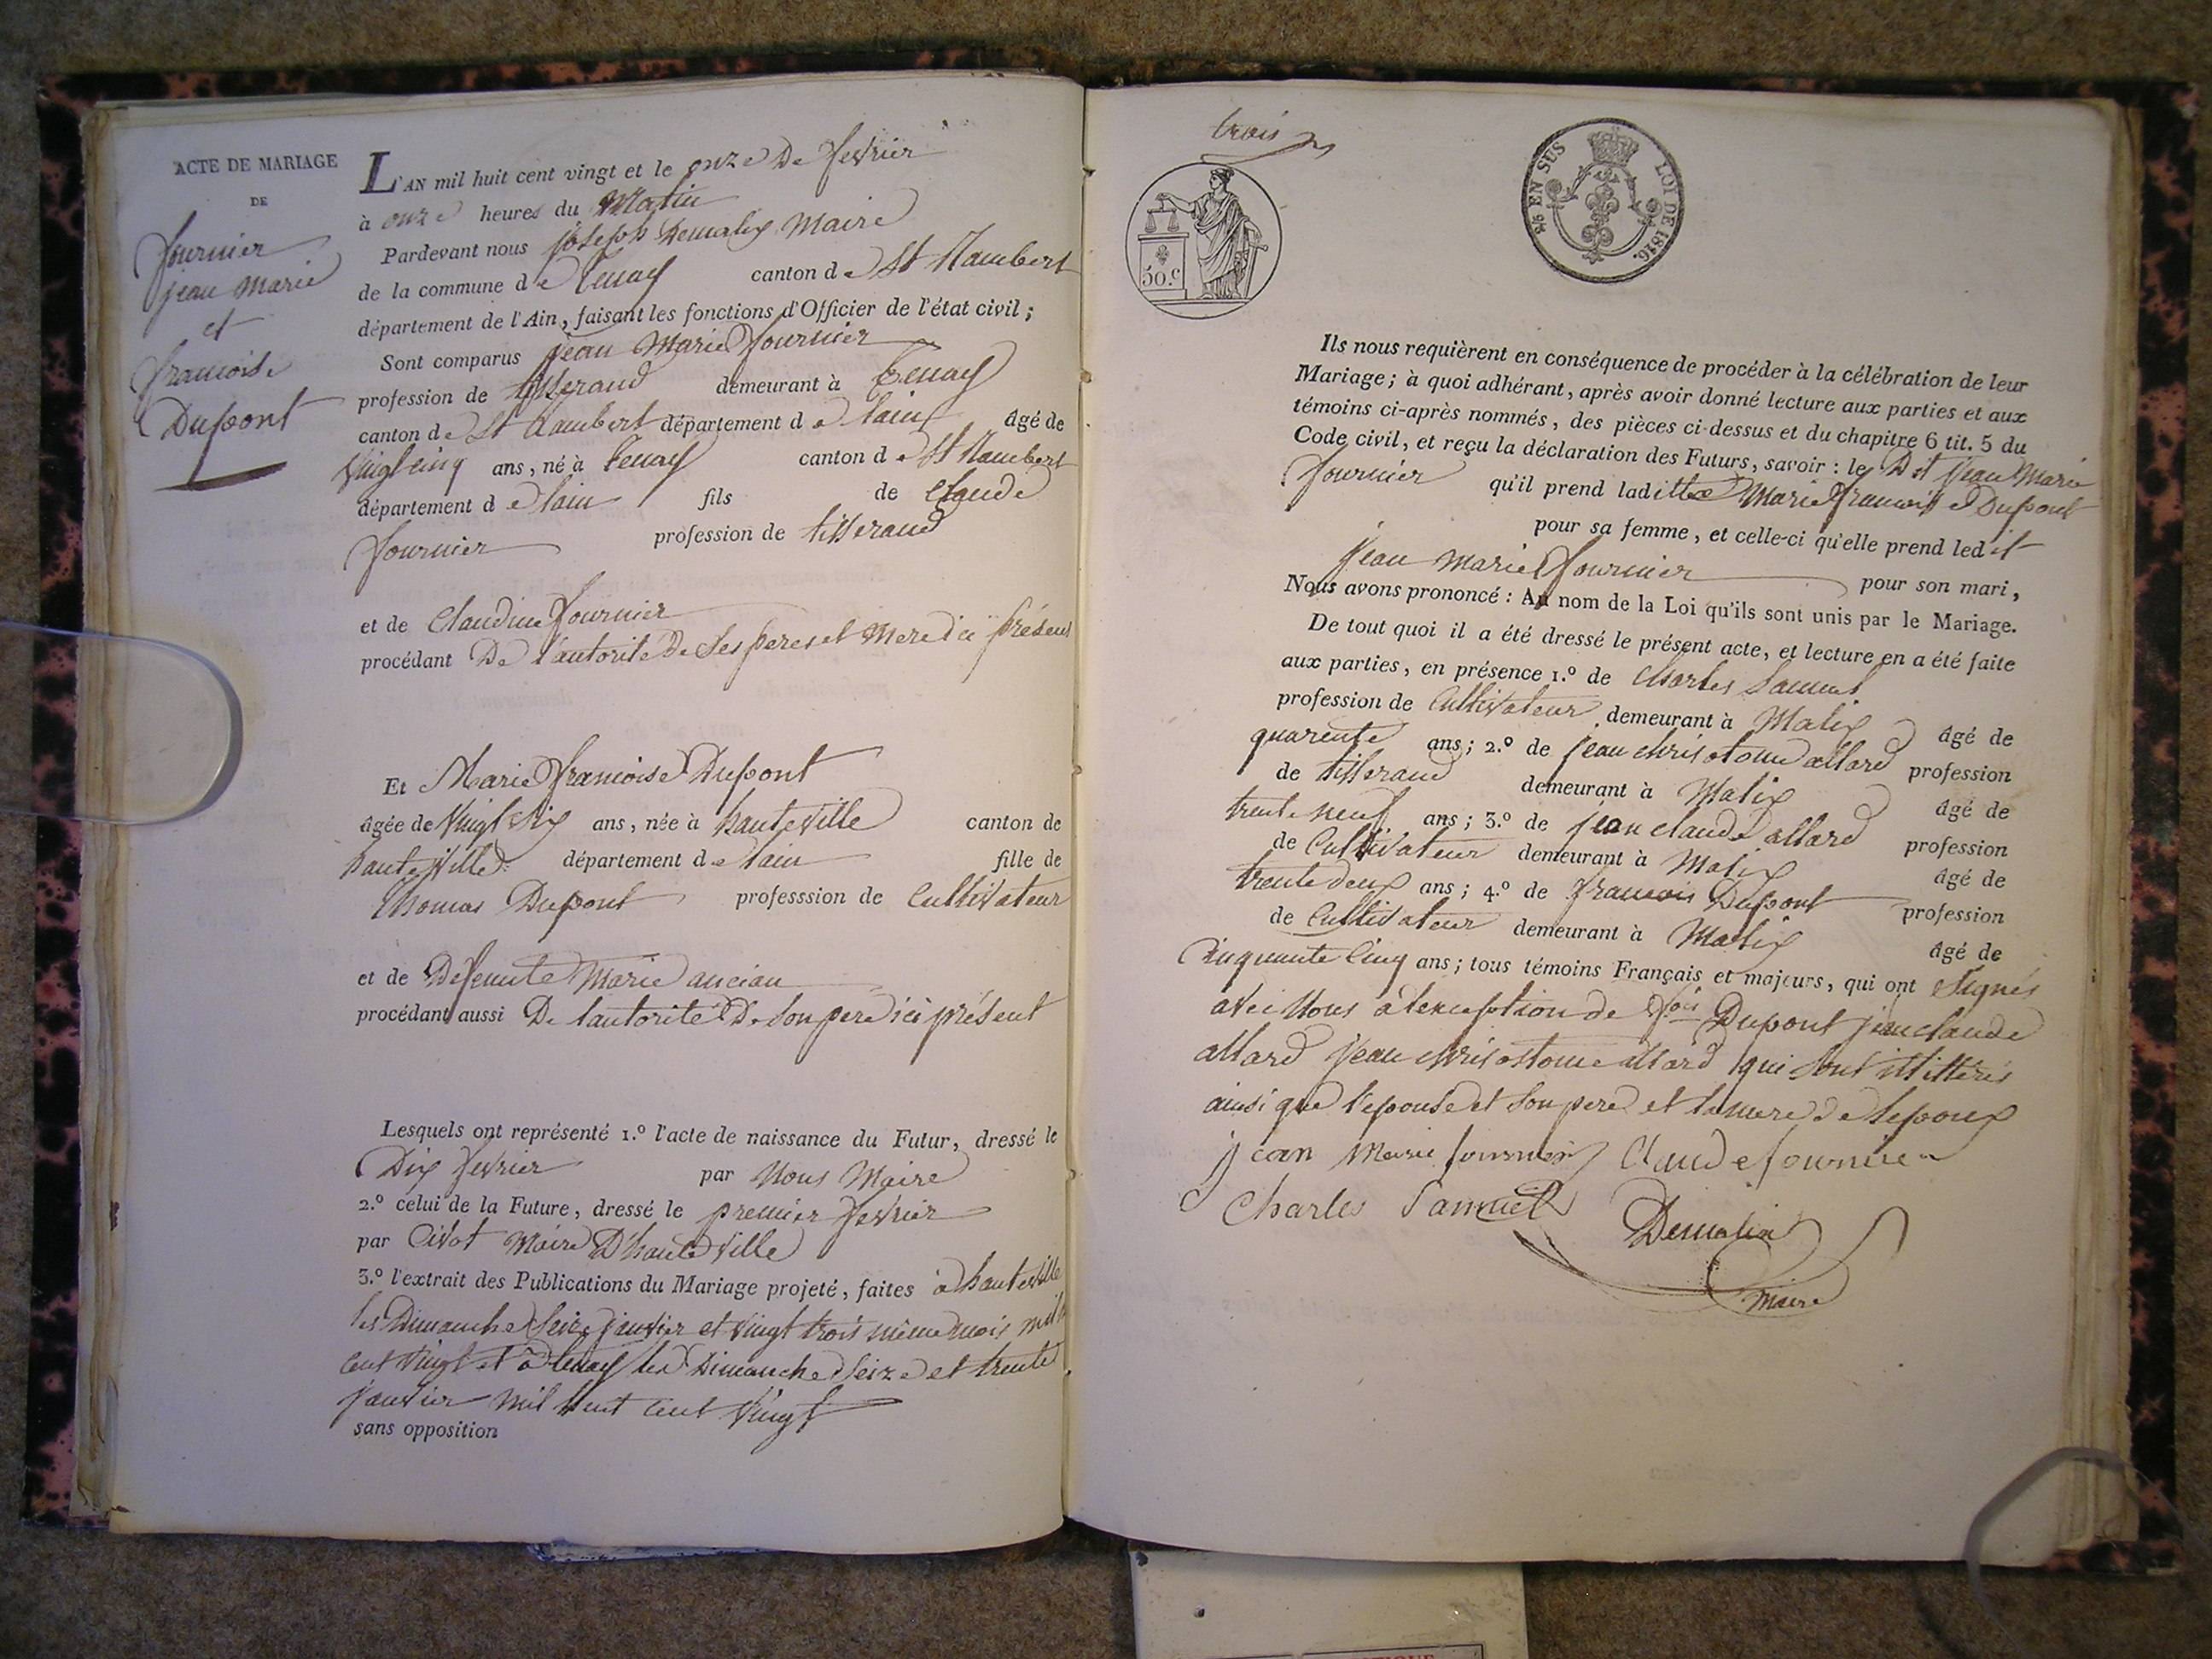 ACTE DE MARIAGE
DE
fournier
jean marie
et
francoise
Dupont
L'AN mil huit cent vingt et le onze De fevrier
à onze heures du Matin
Pardevant nous joseph Demalix Maire
de la commune de tenay canton de St Rambert
département de l'Ain, faisant les fonctions d'Officier de l'état civil;
Sont comparus jean Marie fournier
profession de tisserand demeurant à tenay
canton de St Rambert département de lain âgé de
vingt cinq ans, né à tenay canton de St Rambert
département de lain fils de Claude
fournier profession de tisserand
et de Claudine fournier
procédant De l'autorité De ses peres et Mere ici présens
Et Marie francoise Dupont
âgée de vingt six ans, née à hauteville canton de
hauteville département de lain fille de
thomas Dupont professsion de Cultivateur
et de Defeunte Marie ancian
procédant aussi De lautorité De son pere ici présent
Lesquels ont représenté 1.º l'acte de naissance du Futur, dressé le
Dix fevrier par Nous Maire
2.º celui de la Future, dressé le premier fevrier
par Civot Maire Dhauteville
3.º l'extrait des Publications du Mariage projeté, faites à hauteville
les Dimanche seize janvier et vingt trois même mois mil
cent vingt et à tenay les Dimanche seize et trente
janvier mil huit cent vingt
sans opposition
trois
50.c
EN SUS LOI DE 1816.
Ils nous requièrent en conséquence de procéder à la célébration de leur
Mariage; à quoi adhérant, après avoir donné lecture aux parties et aux
témoins ci-après nommés, des pièces ci-dessus et du chapitre 6 tit. 5 du
Code civil, et reçu la déclaration des Futurs, savoir: le Dit jean Marie
fournier qu'il prend laditte Marie francoise Dupont
pour sa femme, et celle-ci qu'elle prend ledit
jean marie fournier pour son mari,
Nous avons prononcé: Au nom de la Loi qu'ils sont unis par le Mariage.
De tout quoi il a été dressé le présent acte, et lecture en a été faite
aux parties, en présence 1.º de Charles Samuel
profession de Cultivateur demeurant à Malix âgé de
quarente ans; 2.º de jean chrisotome allard profession
de tisserand demeurant à Malix âgé de
trente neuf ans; 3.º de jean claude allard profession
de Cultivateur demeurant à Malix âgé de
trente deux ans; 4.º de francois Dupont profession
de Cultivateur demeurant à Malix âgé de
Cinquante Cinq ans; tous témoins Français et majeurs, qui ont signés
avec Nous à l'exception de fois Dupont jean claude
allard jean chrisostome allard qui sont illitterés
ainsi que l'epouse et son pere et la mere de lepoux
jean marie fournier Claude fournier
Charles Samuel Demalix
maire